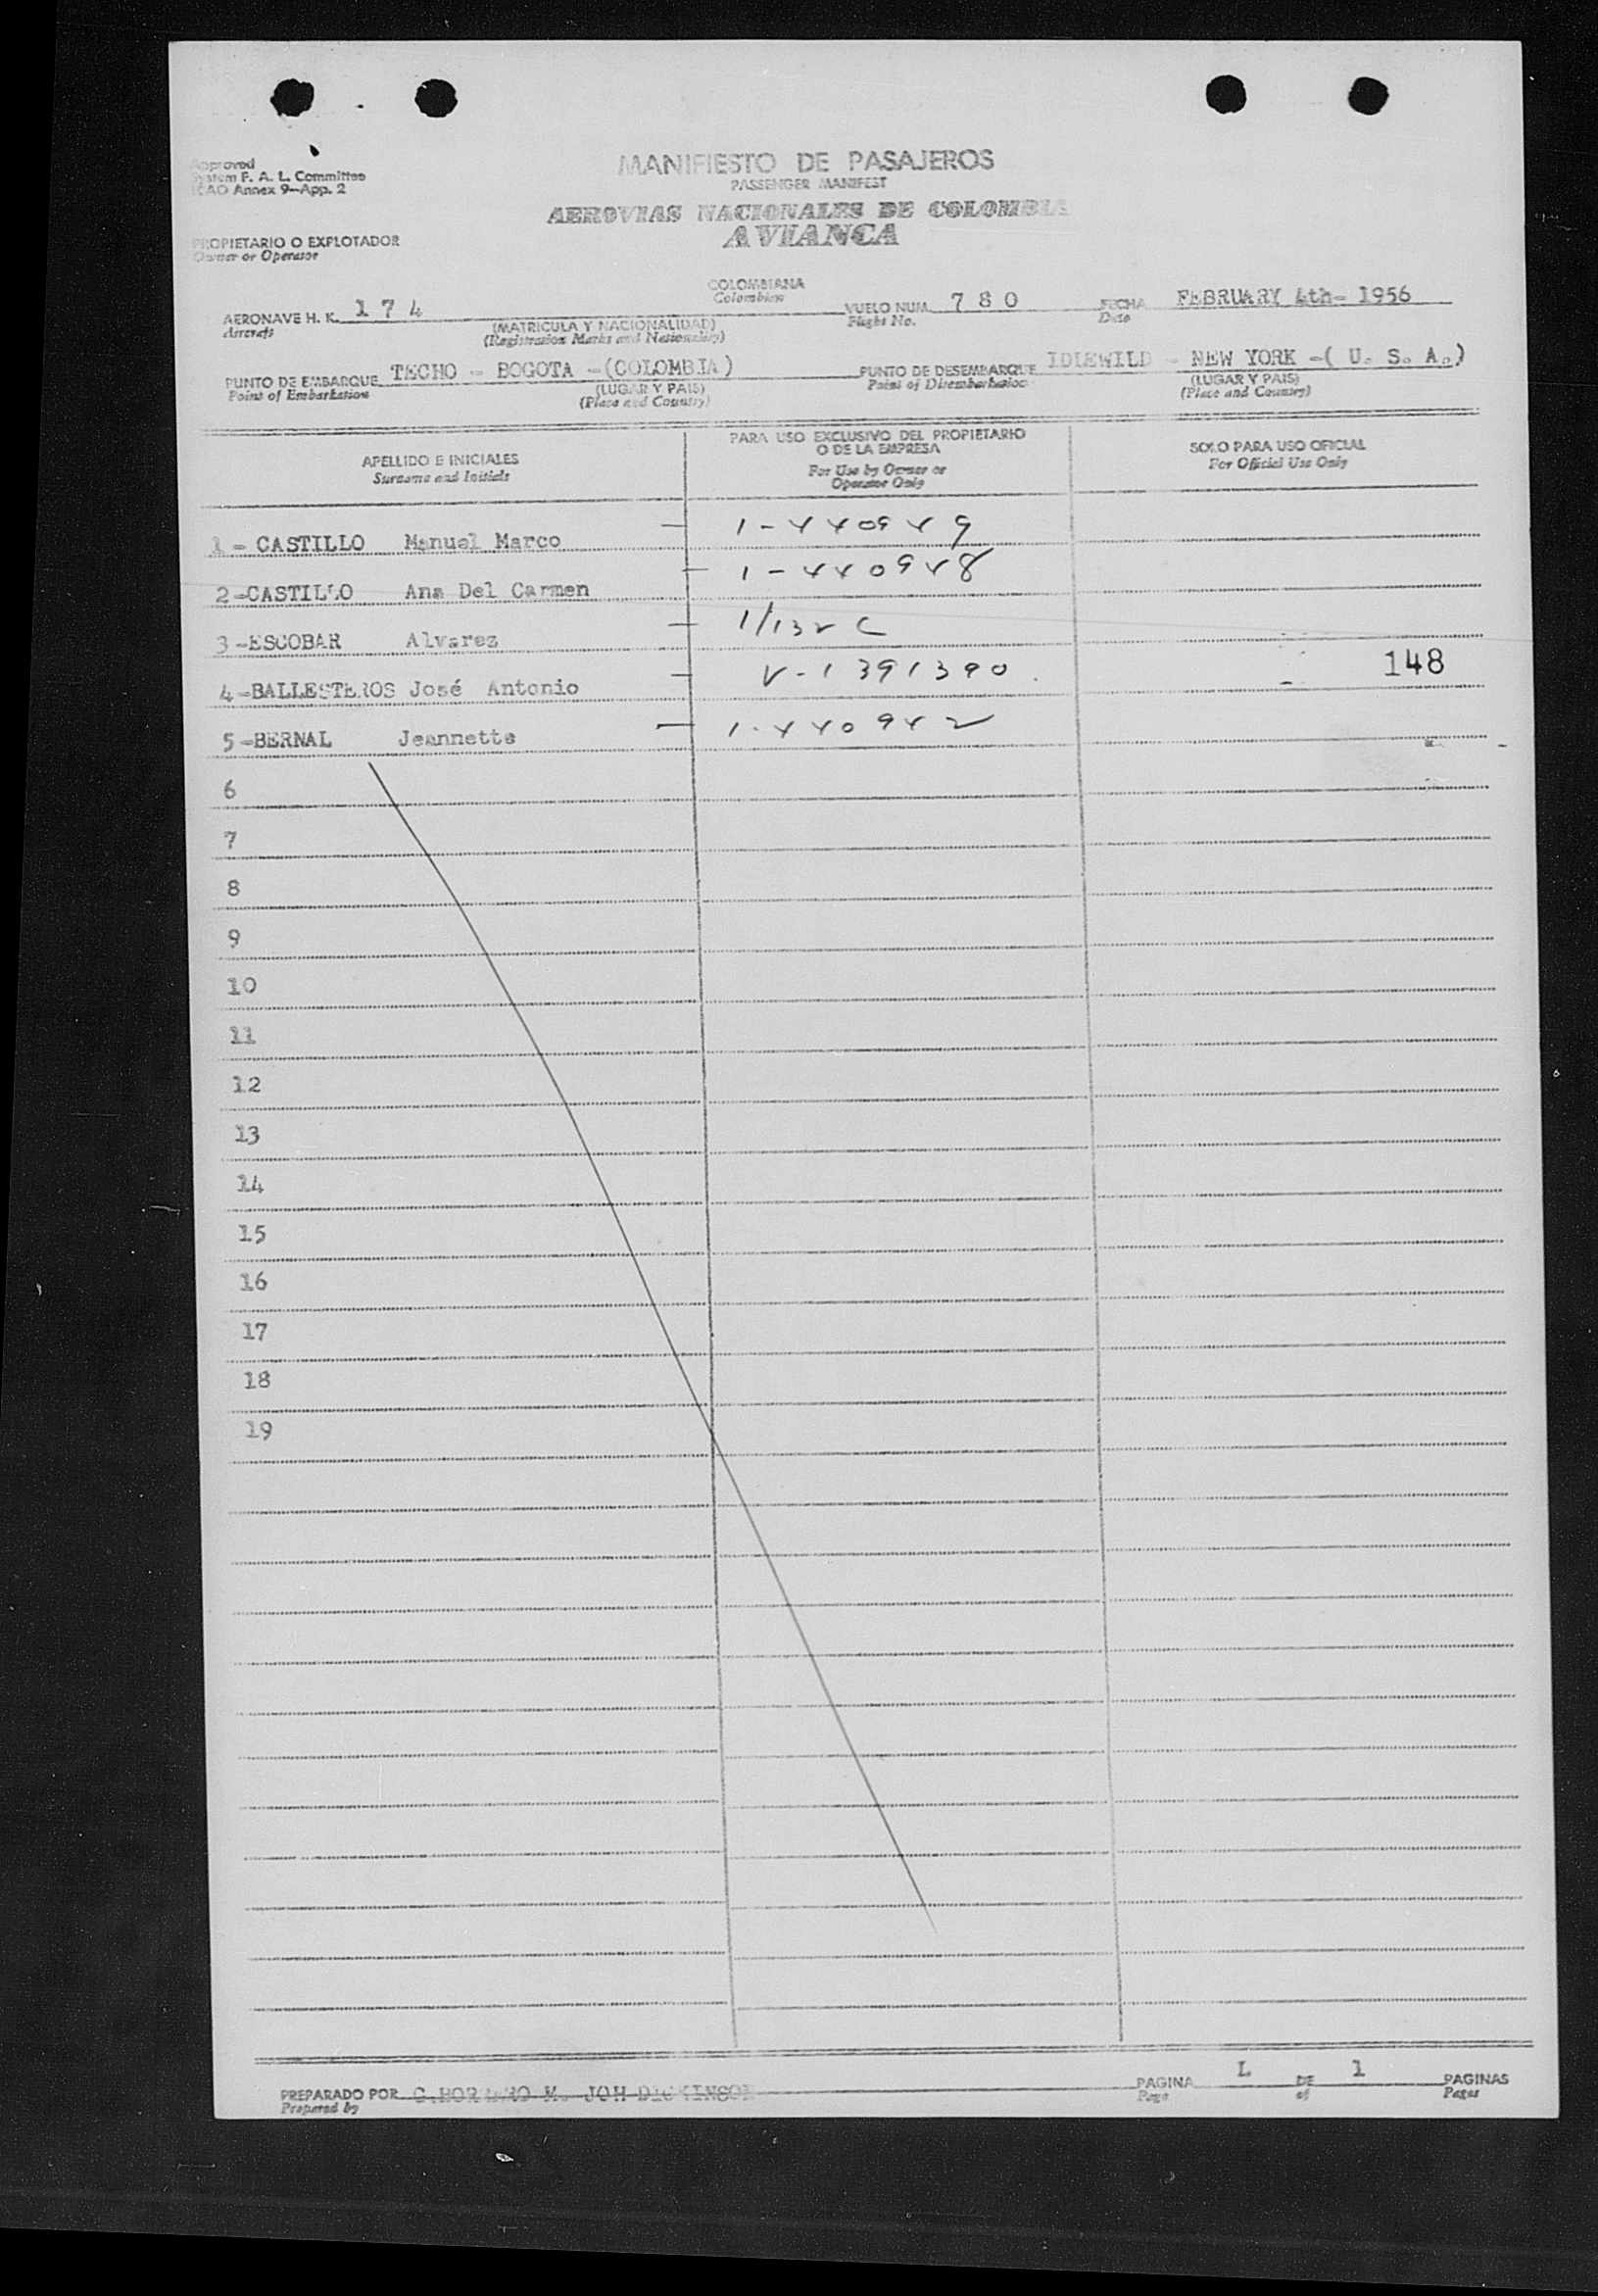 Approved
System F. A. L. Committee
ICAO Annex 9—App. 2
MANIFIESTO DE PASAJEROS
PASSENGER MANIFEST
AEROVIAS NACIONALES DE COLOMBIA
AVIANCA
PROPIETARIO O EXPLOTADOR
Owner or Operator
COLOMBIANA
Colombian
AERONAVE H. K. 174
Aircraft
(MATRICULA Y NACIONALIDAD)
(Registration Marks and Nationality)
VUELO NUM. 780
Flight No.
FECHA FEBRUARY 4th- 1956
Date
PUNTO DE EMBARQUE TECHO - BOGOTA -(COLOMBIA)
Point of Embarkation
(LUGAR Y PAIS)
(Place and Country)
PUNTO DE DESEMBARQUE IDLEWILD - NEW YORK -( U. S. A.)
Point of Disembarkation
(LUGAR Y PAIS)
(Place and Country)
APELLIDO E INICIALES
Surname and Initials
PARA USO EXCLUSIVO DEL PROPIETARIO
O DE LA EMPRESA
For Use by Owner or
Operator Only
SOLO PARA USO OFICIAL
For Official Use Only
1 - CASTILLO Manuel Marco — 1-440949
2 -CASTILLO Ana Del Carmen — 1-440948
3 -ESCOBAR Alvarez — 1/132 C
4 -BALLESTEROS José Antonio — V-1391390. 148
5 -BERNAL Jeannette — 1-440942
6
7
8
9
10
11
12
13
14
15
16
17
18
19
PREPARADO POR
Prepared by
PAGINA L DE 1 PAGINAS
Page of Pages